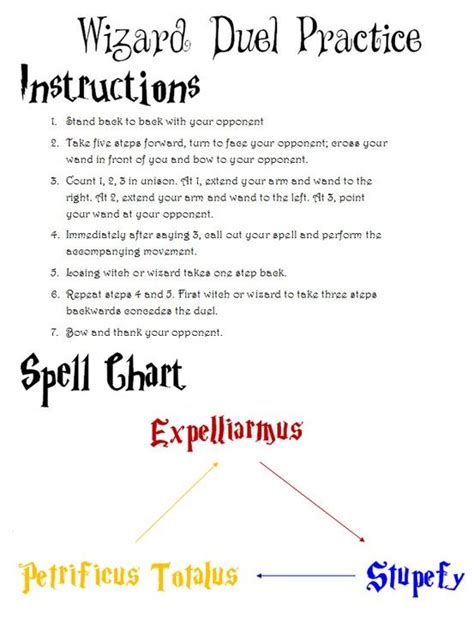 Wizard Duel Practice
Instructions
1. Stand back to back with your opponent
2. Take five steps forward, turn to face your opponent; cross your
wand in front of you and bow to your opponent.
3. Count 1, 2, 3 in unison. At 1, extend your arm and wand to the
right. At 2, extend your arm and wand to the left. At 3, point
your wand at your opponent.
4. Immediately after saying 3, call out your spell and perform the
accompanying movement.
5. Losing witch or wizard takes one step back.
6. Repeat steps 4 and 5. First witch or wizard to take three steps
backwards concedes the duel.
7. Bow and thank your opponent.
Spell Chart
Expelliarmus
Petrificus Totalus
Stupefy